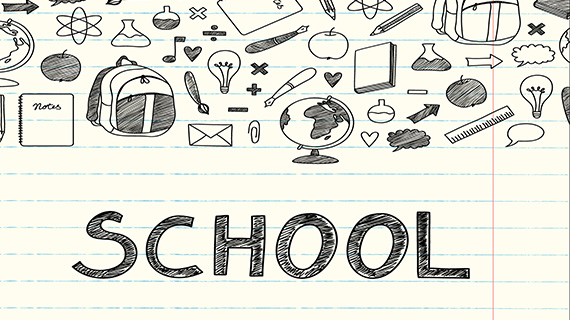 Notes
SCHOOL